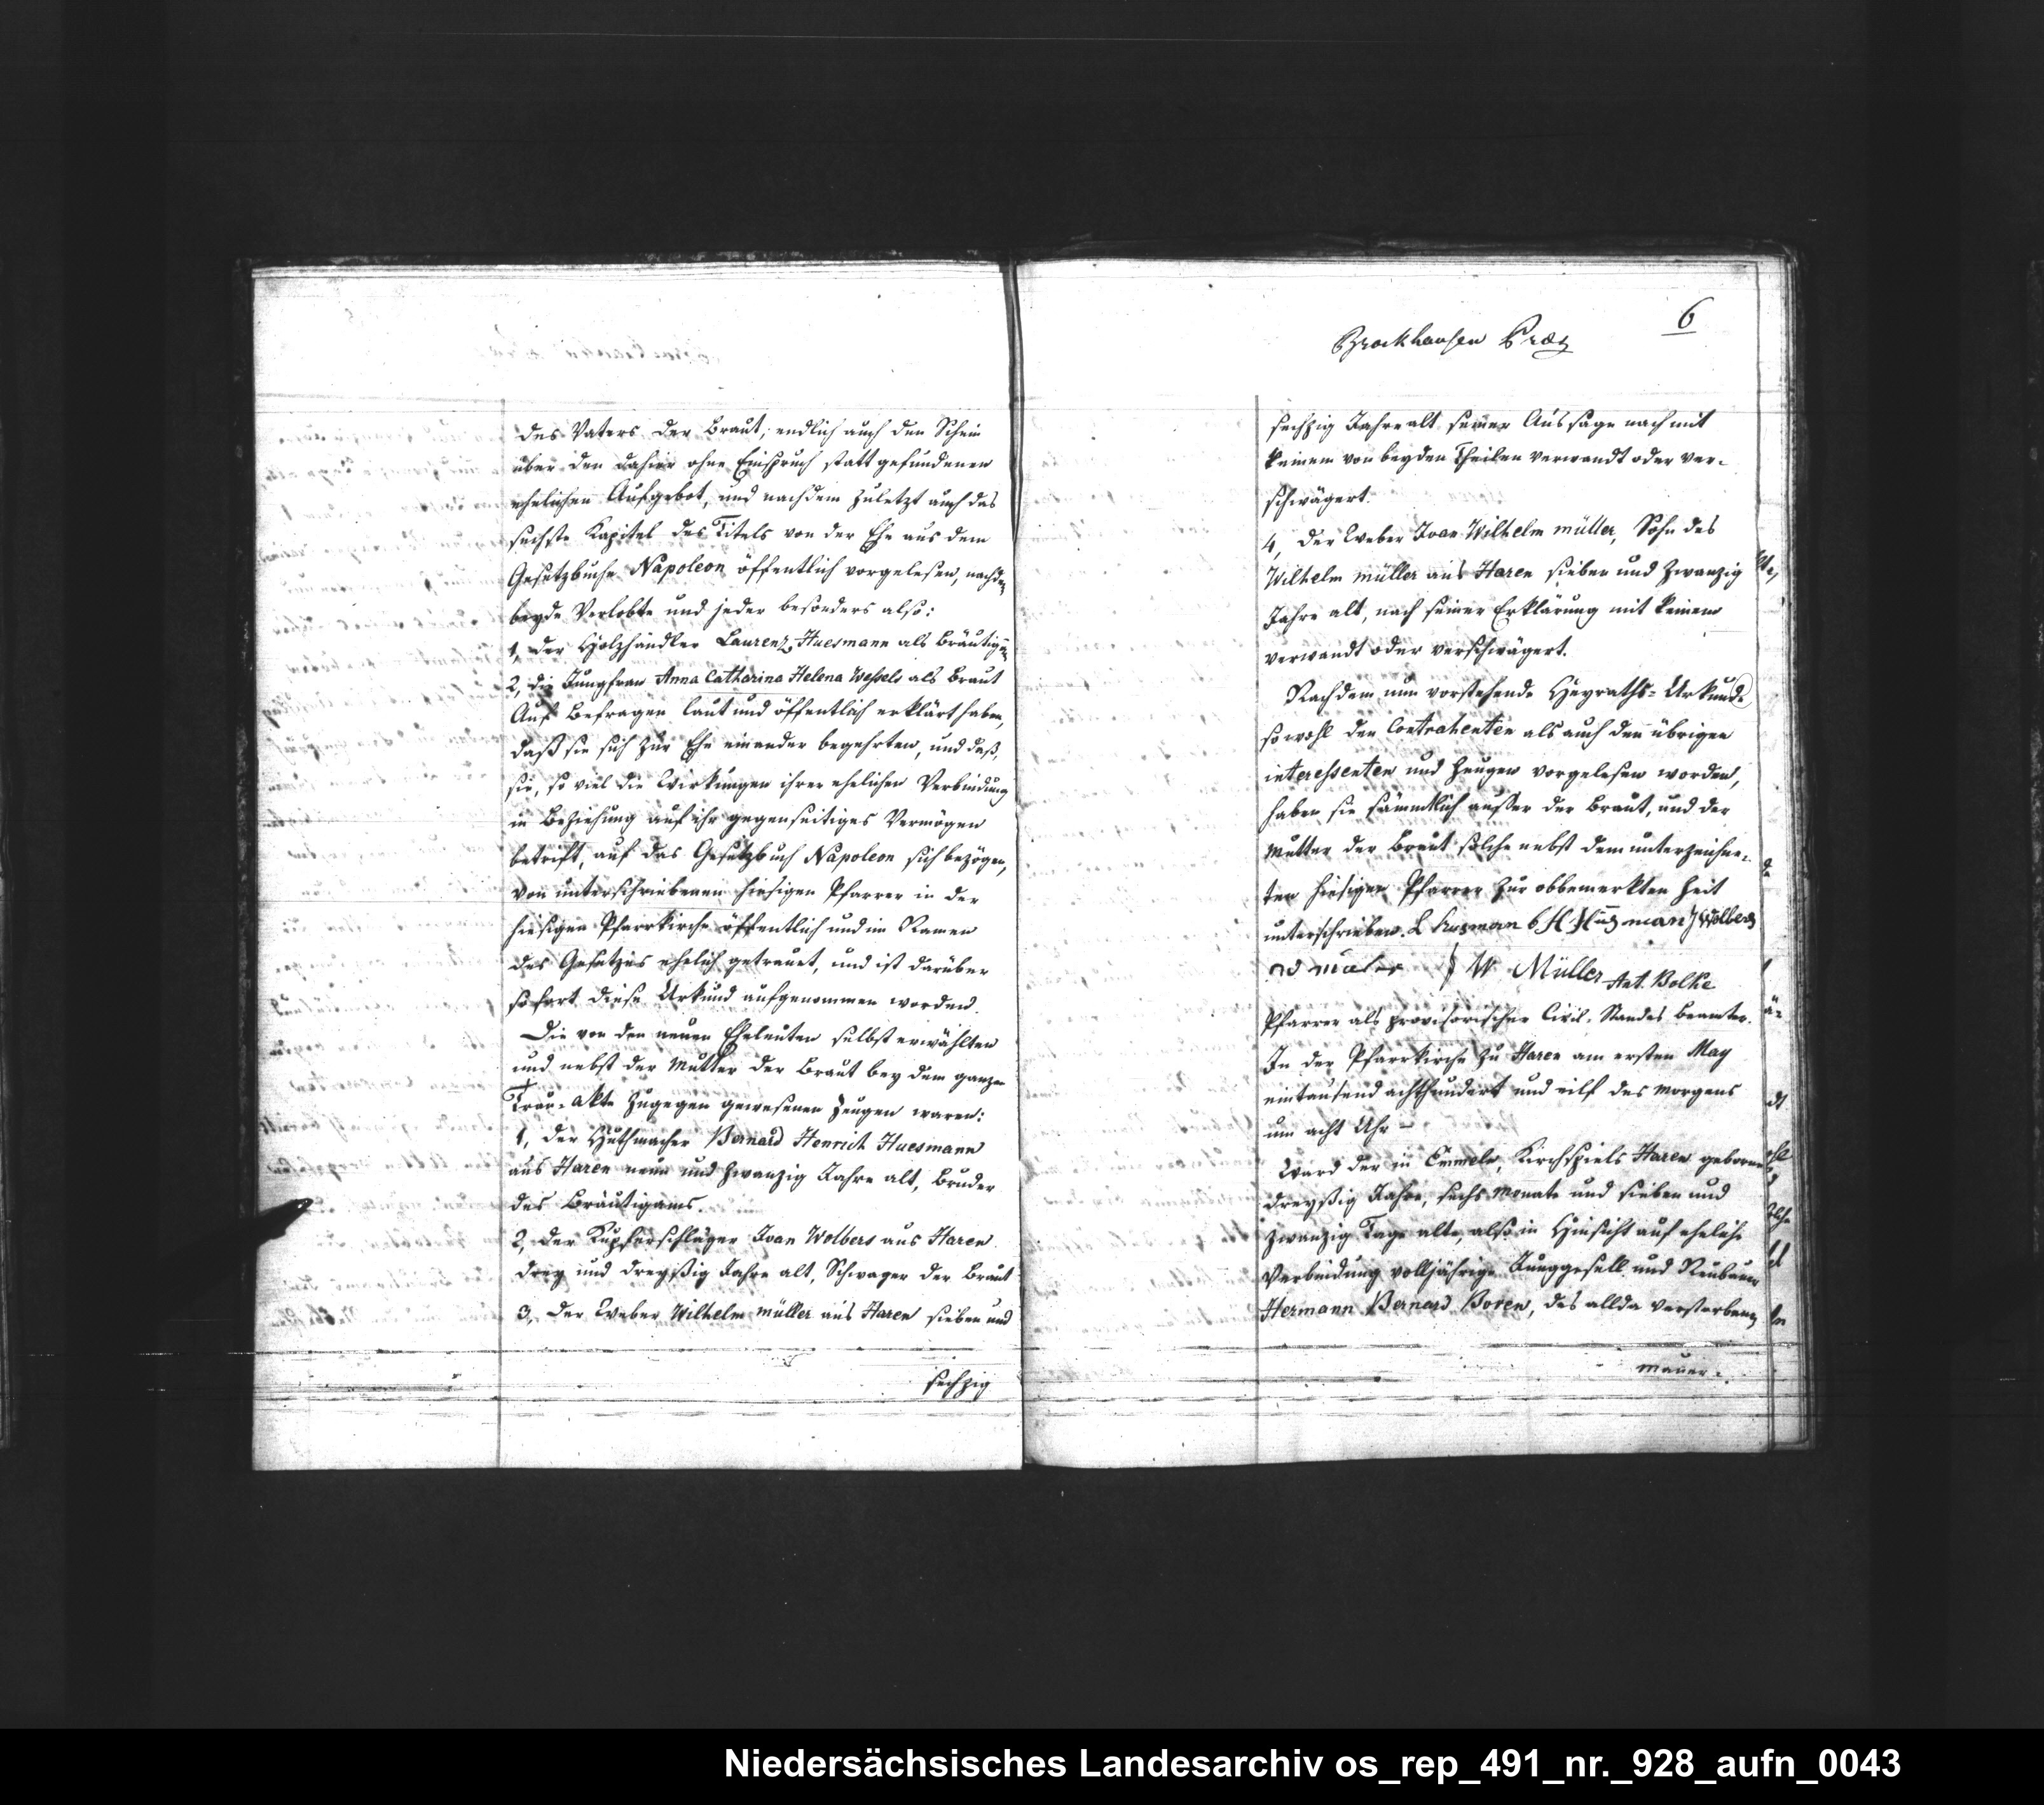 des Vaters der Braut, endlich auch den Schein
über den dahier ohne Einspruch statt gefundenen
ehelichen Aufgebot, und nachdem zuletzt auch das
sechste Kapitel des Titels von der Ehe aus dem
Gesetzbuche Napoleon öffentlich vorgelesen, nachdem
beyde Verlobte und jeder besonders also:
1, der Holzhändler Laurenz Huesmann als Bräutigam
2, die Jungfrau Anna Catharina Helena Wessels als Braut
Auf Befragen laut und öffentlich erklärt haben,
daß sie sich zur Ehe einander begehrten, und daß
sie, so viel die Wirkungen ihrer ehelichen Verbindung
in Beziehung auf ihr gegenseitiges Vermögen
betrift, auf das Gesetzbuch Napoleon sich bezögen,
von unterschriebenen hiesigen Pfarrer in der
hiesigen Pfarrkirche öffentlich und im Namen
des Gesetzes ehelich getrauet, und ist darüber
sofort diese Urkund aufgenommen worden.
Die von den neuen Eheleuten selbst erwählten
und nebst der Mutter der Braut bey dem ganzen
Trau-Akte zugegen gewesenen Zeugen waren:
1, der Huthmacher Bernard Henrich Huesmann
aus Haren neun und zwanzig Jahre alt, Bruder
des Bräutigams.
2, der Kupferschläger Joan Wolbers aus Haren
drey und dreyßig Jahre alt, Schwager der Braut
3, der Weber Wilhelm müller aus Haren sieben und
sechzig
6
Brockhausen
sechzig Jahre alt seiner Aussage nach mit
keinem von beyden Theilen verwandt oder ver-
schwägert.
4, der Weber Joan Wilhelm müller, Sohn des
Wilhelm müller aus Haren sieben und zwanzig
Jahre alt, nach seiner Erklärung mit keinem
verwandt oder verschwägert.
Nachdem nun vorstehende Heyraths-Urkunde
so wohl den Contrahenten als auch den übrigen
interessenten und Zeugen vorgelesen worden,
haben sie sämmtlich ausser der Braut, und der
Mutter der Braut solche nebst dem unterzeichne-
ten hiesigen Pfarrer zur obbemerkten Zeit
unterschrieben. L Husman B H Husman J Wolbers
W Müller Ant. Bolke
Pfarrer als provisorischer Civil-Standes Beamter.
In der Pfarrkirche zu Haren am ersten May
eintausend achthundert und eilf des Morgens
um acht Uhr –
Ward der in Emmeln, Kirchspiels Haren geborene
dreyßig Jahre, sechs Monate und sieben und
zwanzig Tage alte, also in Hinsicht auf eheliche
Verbindung volljährige Junggesell und Neubauer
Hermann Bernard Boren, des allda verstorbenen